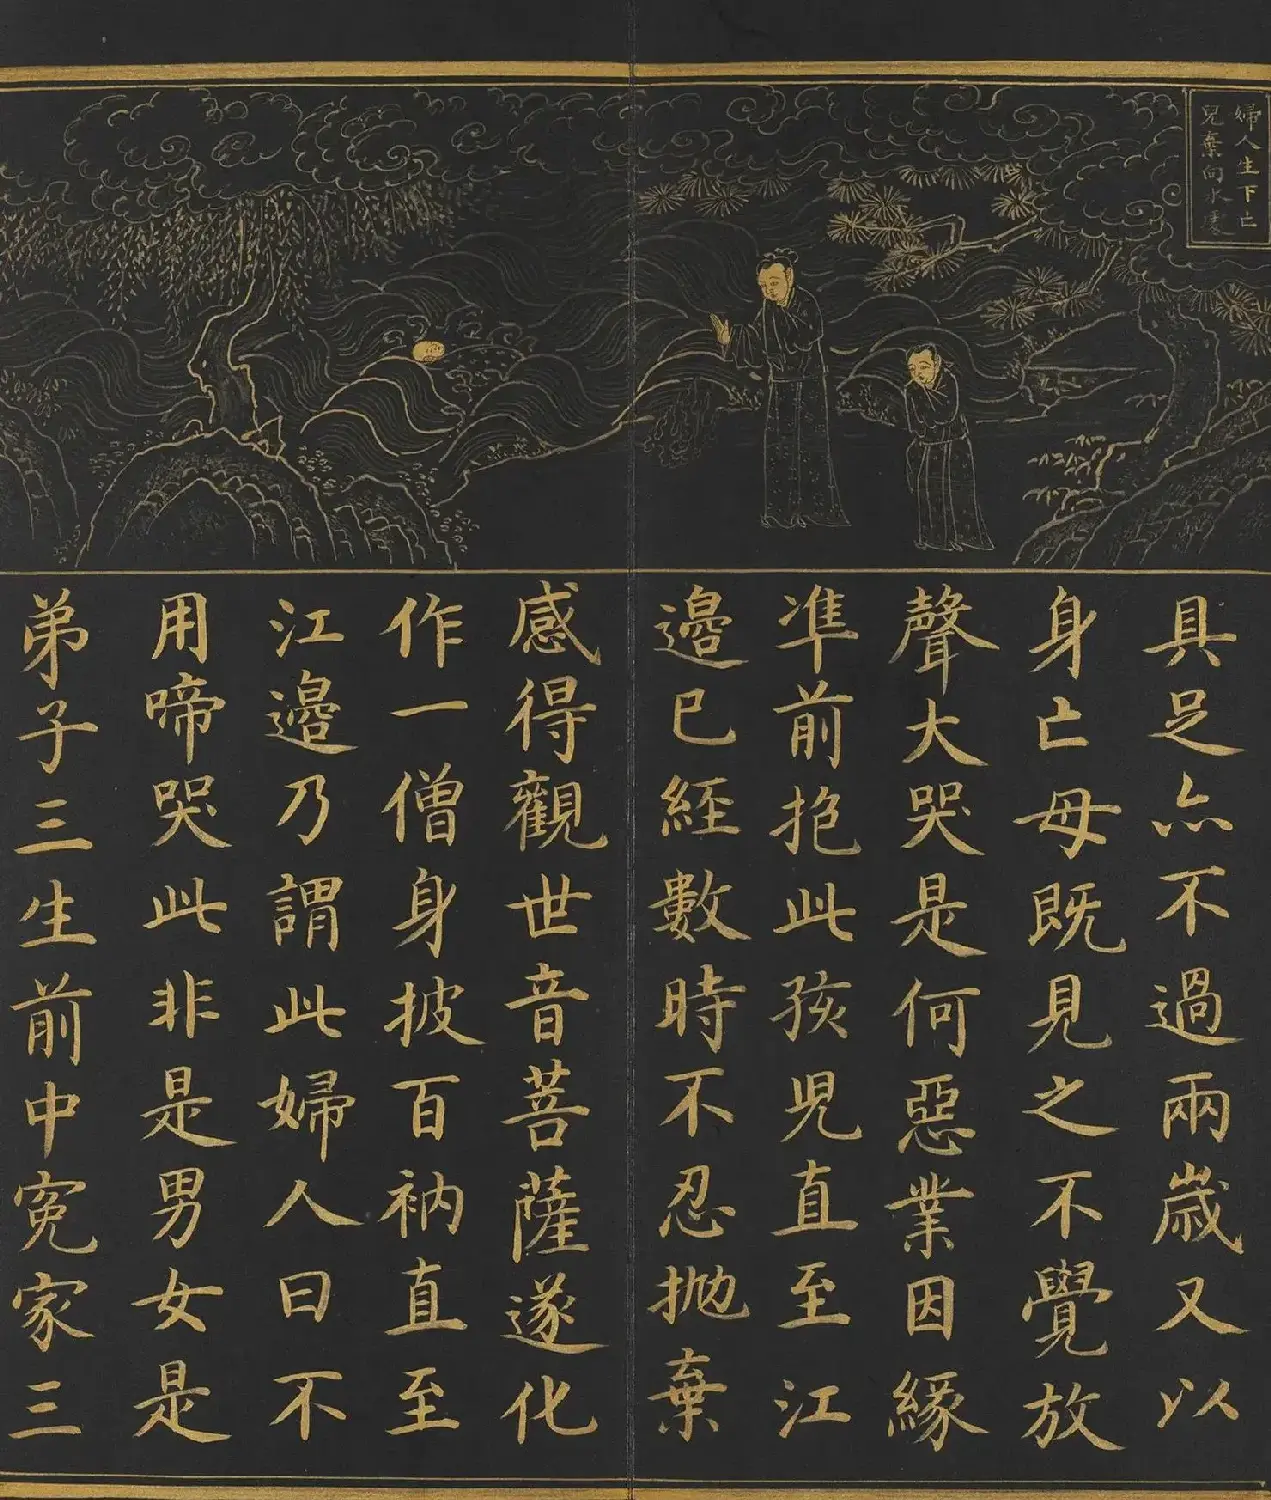 婦人生下亡
兒棄向水處
具足亦不過兩歲又以
身亡母既見之不覺放
聲大哭是何惡業因緣
準前抱此孩兒直至江
邊已經數時不忍拋棄
感得觀世音菩薩遂化
作一僧身披百衲直至
江邊乃謂此婦人曰不
用啼哭此非是男女是
弟子三生前中寃家三